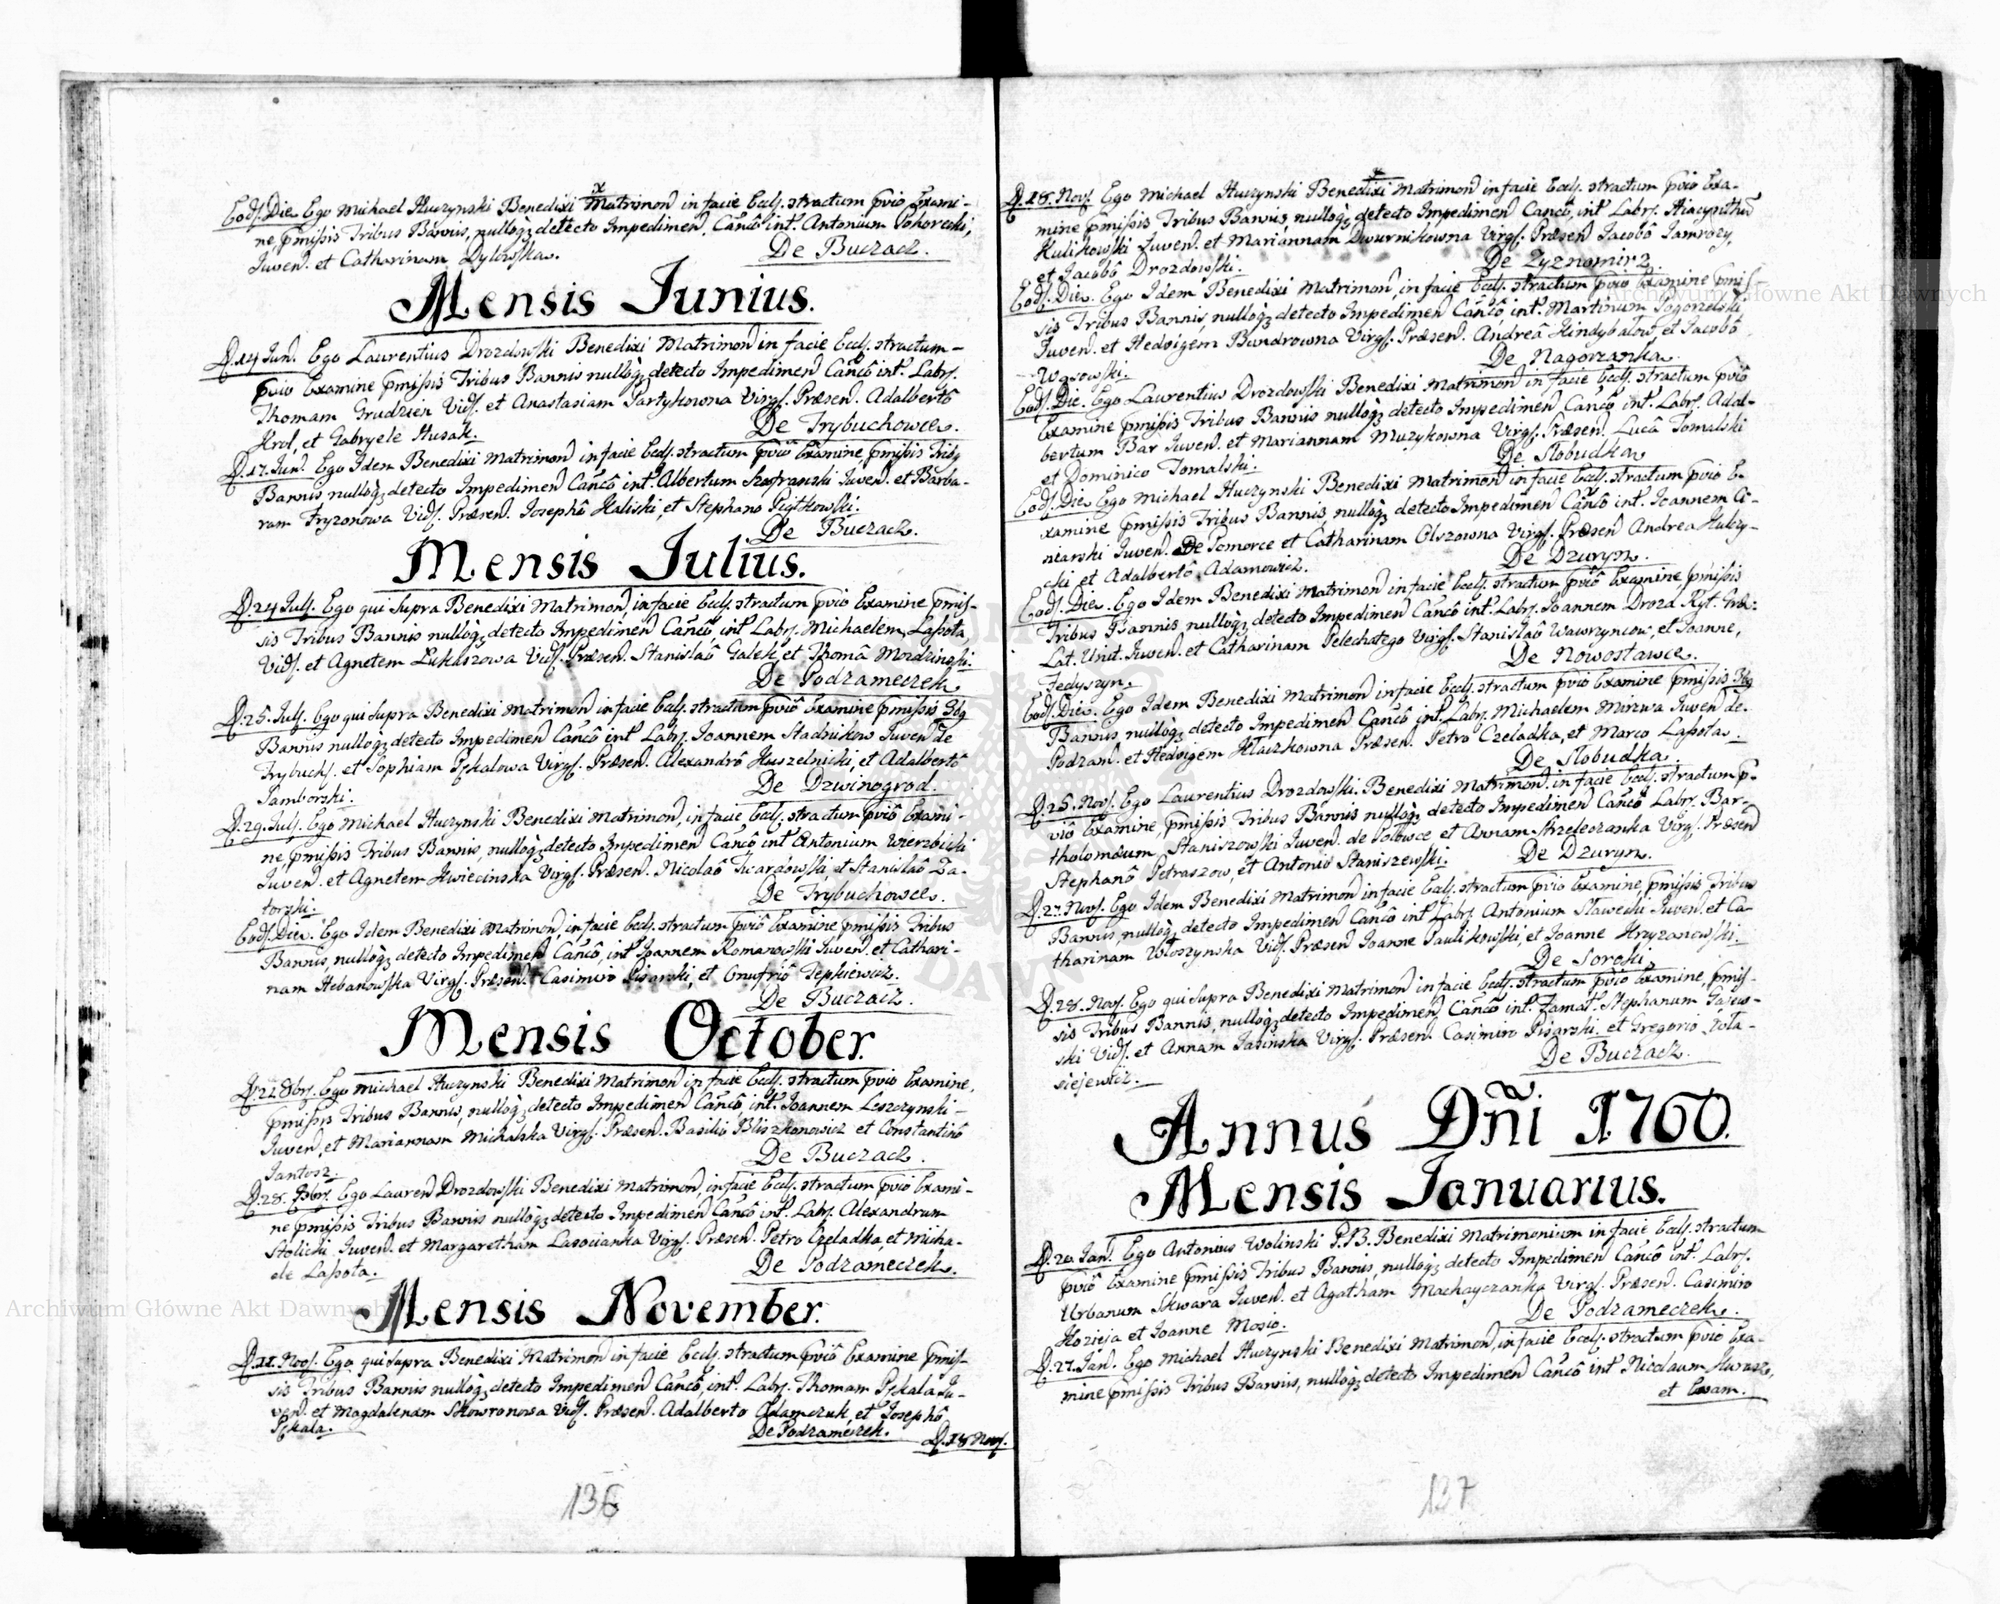 Eod. Die Ego Michael Huczynski Benedixi Matrimon in facie Eccl. stractum pvio Exami-
ne pmissis Tribus Bannis, nulloq detecto Impedimen Canco int. Antonium Pohorecki,
Juven. et Catharinam Dylowska.
De Buczacz.
Mensis Junius.
D. 14 Jun. Ego Laurentius Drozdowski Benedixi Matrimon in facie Eccl. stractum
pvio Examine pmissis Tribus Bannis nulloq detecto Impedimen Canco int. Labr.
Thomam Grudzien Vid. et Anastasiam Partykowna Virg. Præsen. Adalberto
Krol, et Gabryele Husak.
De Trybuchowce.
D. 17. Jun. Ego Idem Benedixi Matrimon in facie Eccl. stractum pvio Examine, pmissis Tribg
Bannis nulloq detecto Impedimen Canco int. Albertum Szafranski Juven. et Barba-
ram Fryzonowa Vid. Præsen. Josepho Haliski, et Stephano Piątkowski.
De Buczacz.
Mensis Julius.
D. 24 Jul. Ego qui supra Benedixi Matrimon, in facie Eccl. stractum pvio Examine pmis-
sis Tribus Bannis nulloq detecto Impedimen Canco, int. Labr. Michaelem Lassota,
Vid. et Agnetem Lukaszowa Vid. Præsen. Stanislao Galek, et Thoma Mordzinski.
De Podzameczek.
D. 25. Jul. Ego qui supra Benedixi Matrimon in facie Eccl. stractum pvio Examine pmissis Tribg
Bannis nulloq detecto Impedimen Canco int. Labr. Joannem Stadnikow Juven de
Trybuch. et Sophiam Pskalowa Virg. Præsen. Alexandro Kuszelnicki, et Adalberto
Samborski.
De Dzwinogrod.
D. 29. Jul. Ego Michael Huczynski Benedixi Matrimon, in facie Eccl. stractum pvio Exami-
ne pmissis Tribus Bannis, nulloq detecto Impedimen Canco int Antonium Wierzbicki
Juven. et Agnetem Kwiecinska Virg. Præsen. Nicolao Twardowski, et Stanislao Za-
torski.
De Trybuchowce.
Eod. Die. Ego Idem Benedixi Matrimon, in facie Eccl. stractum pvio Examine pmissis Tribus
Bannis, nulloq detecto Impedimen Canco, int Joannem Romanowski Juven. et Cathari-
nam Hebanowska Virg. Præsen. Casimiro Pisarski, et Onufrio Tepkiewicz.
De Buczacz.
Mensis October.
D. 21. 8br. Ego Michael Huczynski Benedixi Matrimon in facie Eccl. stractum pvio Examine,
pmissis Tribus Bannis, nulloq detecto Impedimen Canco, int. Joannem Leszczynski
Juven, et Mariannam Michalska Virg. Præsen. Basilio Bliszkonowicz et Constantino
Jantosz.
De Buczacz.
D. 28. 8br. Ego Lauren Drozdowski Benedixi Matrimon, in facie Eccl. stractum pvio Exami-
ne pmissis Tribus Bannis nulloq detecto Impedimen Canco int. Labr. Alexandrum
Stolicki Juven. et Margaretham Lasocianka Virg. Præsen. Petro Czeladka, et Micha-
ele Lassota.
De Podzameczek.
Mensis November.
D. 11. Nov. Ego qui supra Benedixi Matrimon in facie Eccl. stractum pvio Examine pmis-
sis Tribus Bannis nulloq detecto Impedimen Canco, int. Labr. Thomam Pskala Ju-
ven. et Magdalenam Skowronowa Vid. Præsen. Adalberto Adamczuk, et Josepho
Pskala.
De Podzameczek.
D. 18 Nov.
136
D. 18. Nov. Ego Michael Huczynski Benedixi Matrimon in facie Eccl. stractum pvio Exa-
mine pmissis Tribus Bannis nulloq detecto Impedimen Canco, int Labr. Hiacynthu
Kulikowski Juven. et Mariannam Dwurnikowna Virg. Præsen Jacobo Jamrozy,
et Jacobo Drozdowski.
De Zyznomirz.
Eod. Die. Ego Idem Benedixi Matrimon, in facie Eccl. stractum pvio Examine pmis-
sis Tribus Bannis, nulloq detecto Impedimen Canco int. Martinum Pogorzelski
Juven. et Hedvigem Bandrowna Virg. Præsen. Andrea Kindybalow, et Jacobo
Wąsowski.
De Nagorzanka.
Eod. Die. Ego Laurentius Drozdowski Benedixi Matrimon in facie Eccl. stractum pvio
Examine pmissis Tribus Bannis nulloq detecto Impedimen Canco int. Labr. Adal-
bertum Bar Juven. et Mariannam Muzykowna Virg. Præsen. Luca Tomalski
et Dominico Tomalski.
De Slobudka
Eod. Die. Ego Michael Huczynski Benedixi Matrimon in facie Eccl. stractum pvio E-
xamine pmissis Tribus Bannis, nulloq detecto Impedimen Canco int. Joannem Gi-
niarski Juven. De Pomorce et Catharinam Olszowna Virg. Præsen Andrea Kulczy-
cki et Adalberto Adamowicz.
De Dzuryn.
Eod. Die. Ego Idem Benedixi Matrimon in facie Eccl. stractum pvio Examine pmissis
Tribus Bannis nulloq detecto Impedimen Canco int. Labr. Joannem Drozd Ryt.
Lat. Unit. Juven. et Catharinam Pelechatego Virg. Stanislao Wawrzyncow, et Joanne,
Fedyszyn.
De Nowostawce.
Eod. Die. Ego Idem Benedixi Matrimon in facie Eccl. stractum pvio Examine pmissis Tribg
Bannis, nulloq detecto Impedimen Canco int. Labr. Michaelem Mirzwa Juven de
Podzam. et Hedvigem Klaczkowna Præsen. Petro Czeladka, et Marco Lassota.
De Slobudka.
D. 25. Nov. Ego Laurentius Drozdowski. Benedixi Matrimon. in facie Eccl. stractum p-
vio Examine, pmissis Tribus Bannis nulloq detecto Impedimen Canco Labr. Bar-
tholomæum Staniszowski Juven. de Polowce et Annam Strzelczanka Virg. Præsen
Stephano Petraszow, et Antonio Staniszewski.
De Dzuryn.
D. 27. Nov. Ego Idem Benedixi Matrimon in facie Eccl. stractum pvio Examine, pmissis Tribus
Bannis, nulloq detecto Impedimen Canco int Labr. Antonium Stawecki Juven. et Ca
tharinam Woszynska Vid. Præsen Joanne Paulikowski, et Joanne Krzyzanowski.
De Soroki.
D. 28. Nov. Ego qui supra Benedixi Matrimon in facie Eccl. stractum pvio Examine, pmis-
sis Tribus Bannis, nulloq detecto Impedimen. Canco int. Famat. Stephanum Gajew-
ski Vid. et Annam Jasinska Virg. Præsen. Casimiro Pisarski. et Gregorio Zota-
siejewicz.
De Buczacz.
Annus Dñi 1760.
Mensis Januarius.
D. 20. Jan. Ego Antonius Wolinski P.B. Benedixi Matrimonium in facie Eccl. stractum
pvio Examine pmissis Tribus Bannis, nulloq detecto Impedimen Canco int. Labr.
Urbanum Skwara Juven. et Agatham Machayczanka Virg. Præsen. Casimiro
Kozieja et Joanne Mosio.
De Podzameczek.
D. 27. Jan. Ego Michael Huczynski Benedixi Matrimon, in facie Eccl. stractum pvio Exa-
mine pmissis Tribus Bannis, nulloq detecto Impedimen Canco int Nicolaum
et Exam.
137
Archiwum Główne Akt Dawnych
Archiwum Główne Akt Dawnych